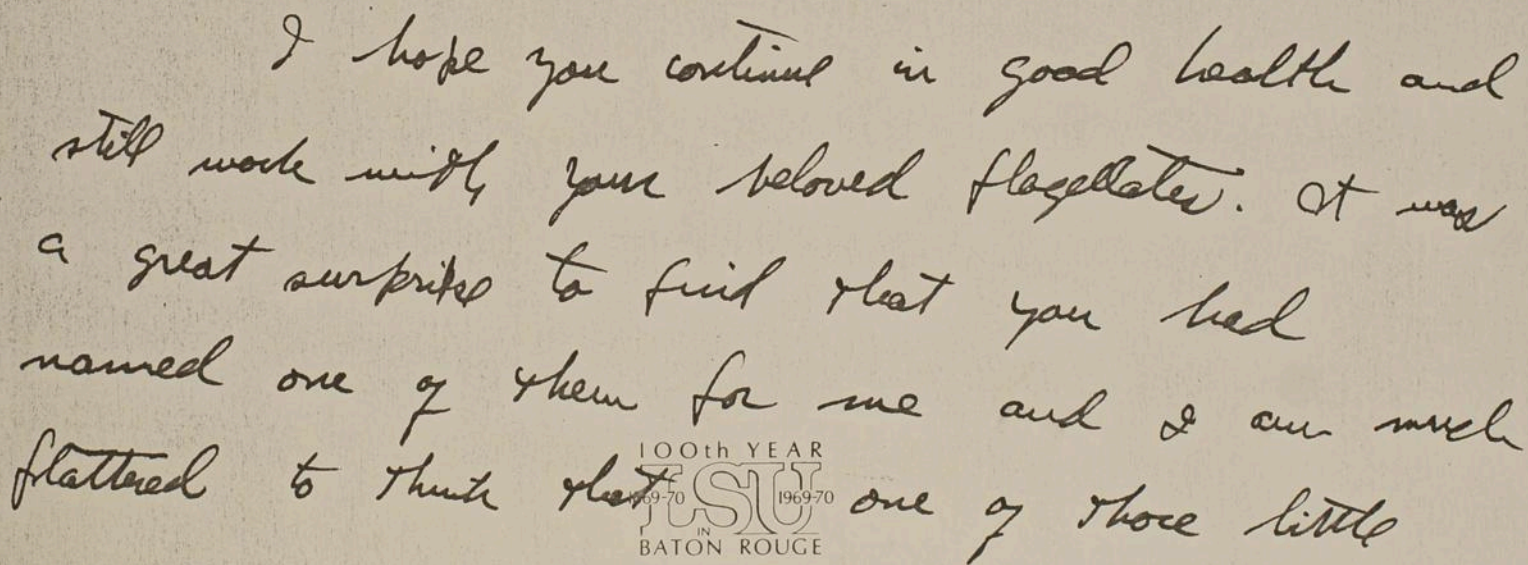 I hope you continue in good health and
still work with your beloved flagellates. It was
a great surprise to find that you had
named one of them for me and I am much
flattered to think that one of those little
100th YEAR
1869-70 LSU 1969-70
IN
BATON ROUGE